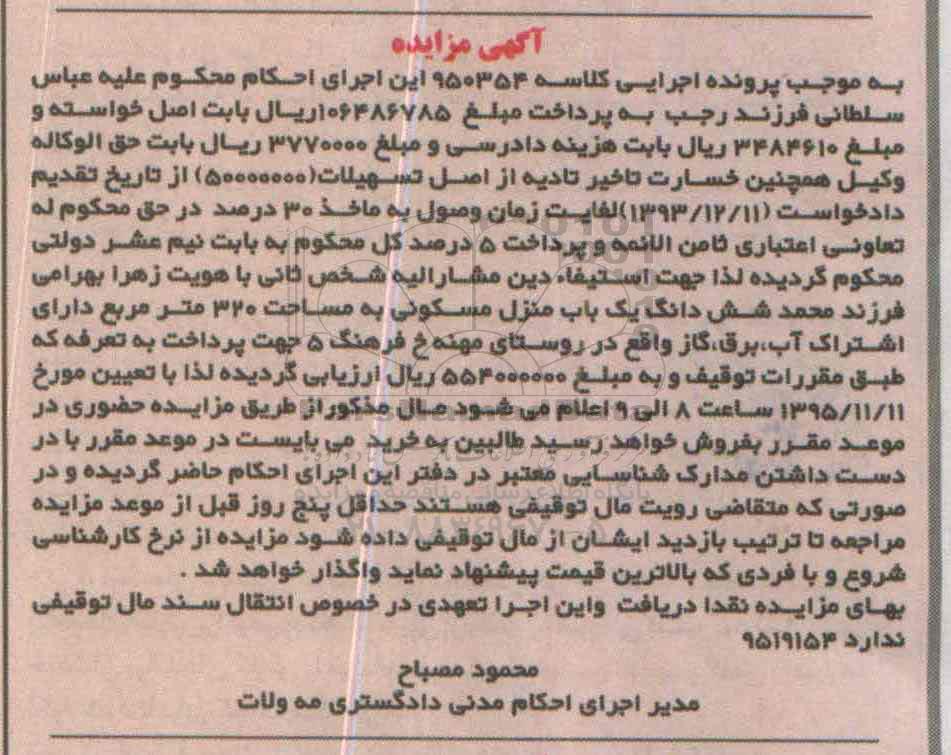 آگهی مزایده
به موجب پرونده اجرایی کلاسه ۹۵۰۳۵۴ این اجرای احکام محکوم علیه عباس
سلطانی فرزند رجب به پرداخت مبلغ ۱۰۶۴۸۶۷۸۵ریال بابت اصل خواسته و
مبلغ ۳۴۸۴۶۱۰ ریال بابت هزینه دادرسی و مبلغ ۳۷۷۰۰۰۰ ریال بابت حق الوکاله
وکیل همچنین خسارت تاخیر تادیه از اصل تسهیلات(۵۰۰۰۰۰۰۰) از تاریخ تقدیم
دادخواست (۱۳۹۳/۱۲/۱۱)لغایت زمان وصول به ماخذ ۳۰ درصد در حق محکوم له
تعاونی اعتباری ثامن الائمه و پرداخت ۵ درصد کل محکوم به بابت نیم عشر دولتی
محکوم گردیده لذا جهت استیفاء دین مشارالیه شخص ثانی با هویت زهرا بهرامی
فرزند محمد شش دانگ یک باب منزل مسکونی به مساحت ۳۲۰ متر مربع دارای
اشتراک آب،برق،گاز واقع در روستای مهنه خ فرهنگ ۵ جهت پرداخت به تعرفه که
طبق مقررات توقیف و به مبلغ ۵۵۴۰۰۰۰۰۰ ریال ارزیابی گردیده لذا با تعیین مورخ
۱۳۹۵/۱۱/۱۱ ساعت ۸ الی ۹ اعلام می شود مال مذکور از طریق مزایده حضوری در
موعد مقرر بفروش خواهد رسید طالبین به خرید می بایست در موعد مقرر با در
دست داشتن مدارک شناسایی معتبر در دفتر این اجرای احکام حاضر گردیده و در
صورتی که متقاضی رویت مال توقیفی هستند حداقل پنج روز قبل از موعد مزایده
مراجعه تا ترتیب بازدید ایشان از مال توقیفی داده شود مزایده از نرخ کارشناسی
شروع و با فردی که بالاترین قیمت پیشنهاد نماید واگذار خواهد شد .
بهای مزایده نقدا دریافت واین اجرا تعهدی در خصوص انتقال سند مال توقیفی
ندارد ۹۵۱۹۱۵۴
محمود مصباح
مدیر اجرای احکام مدنی دادگستری مه ولات